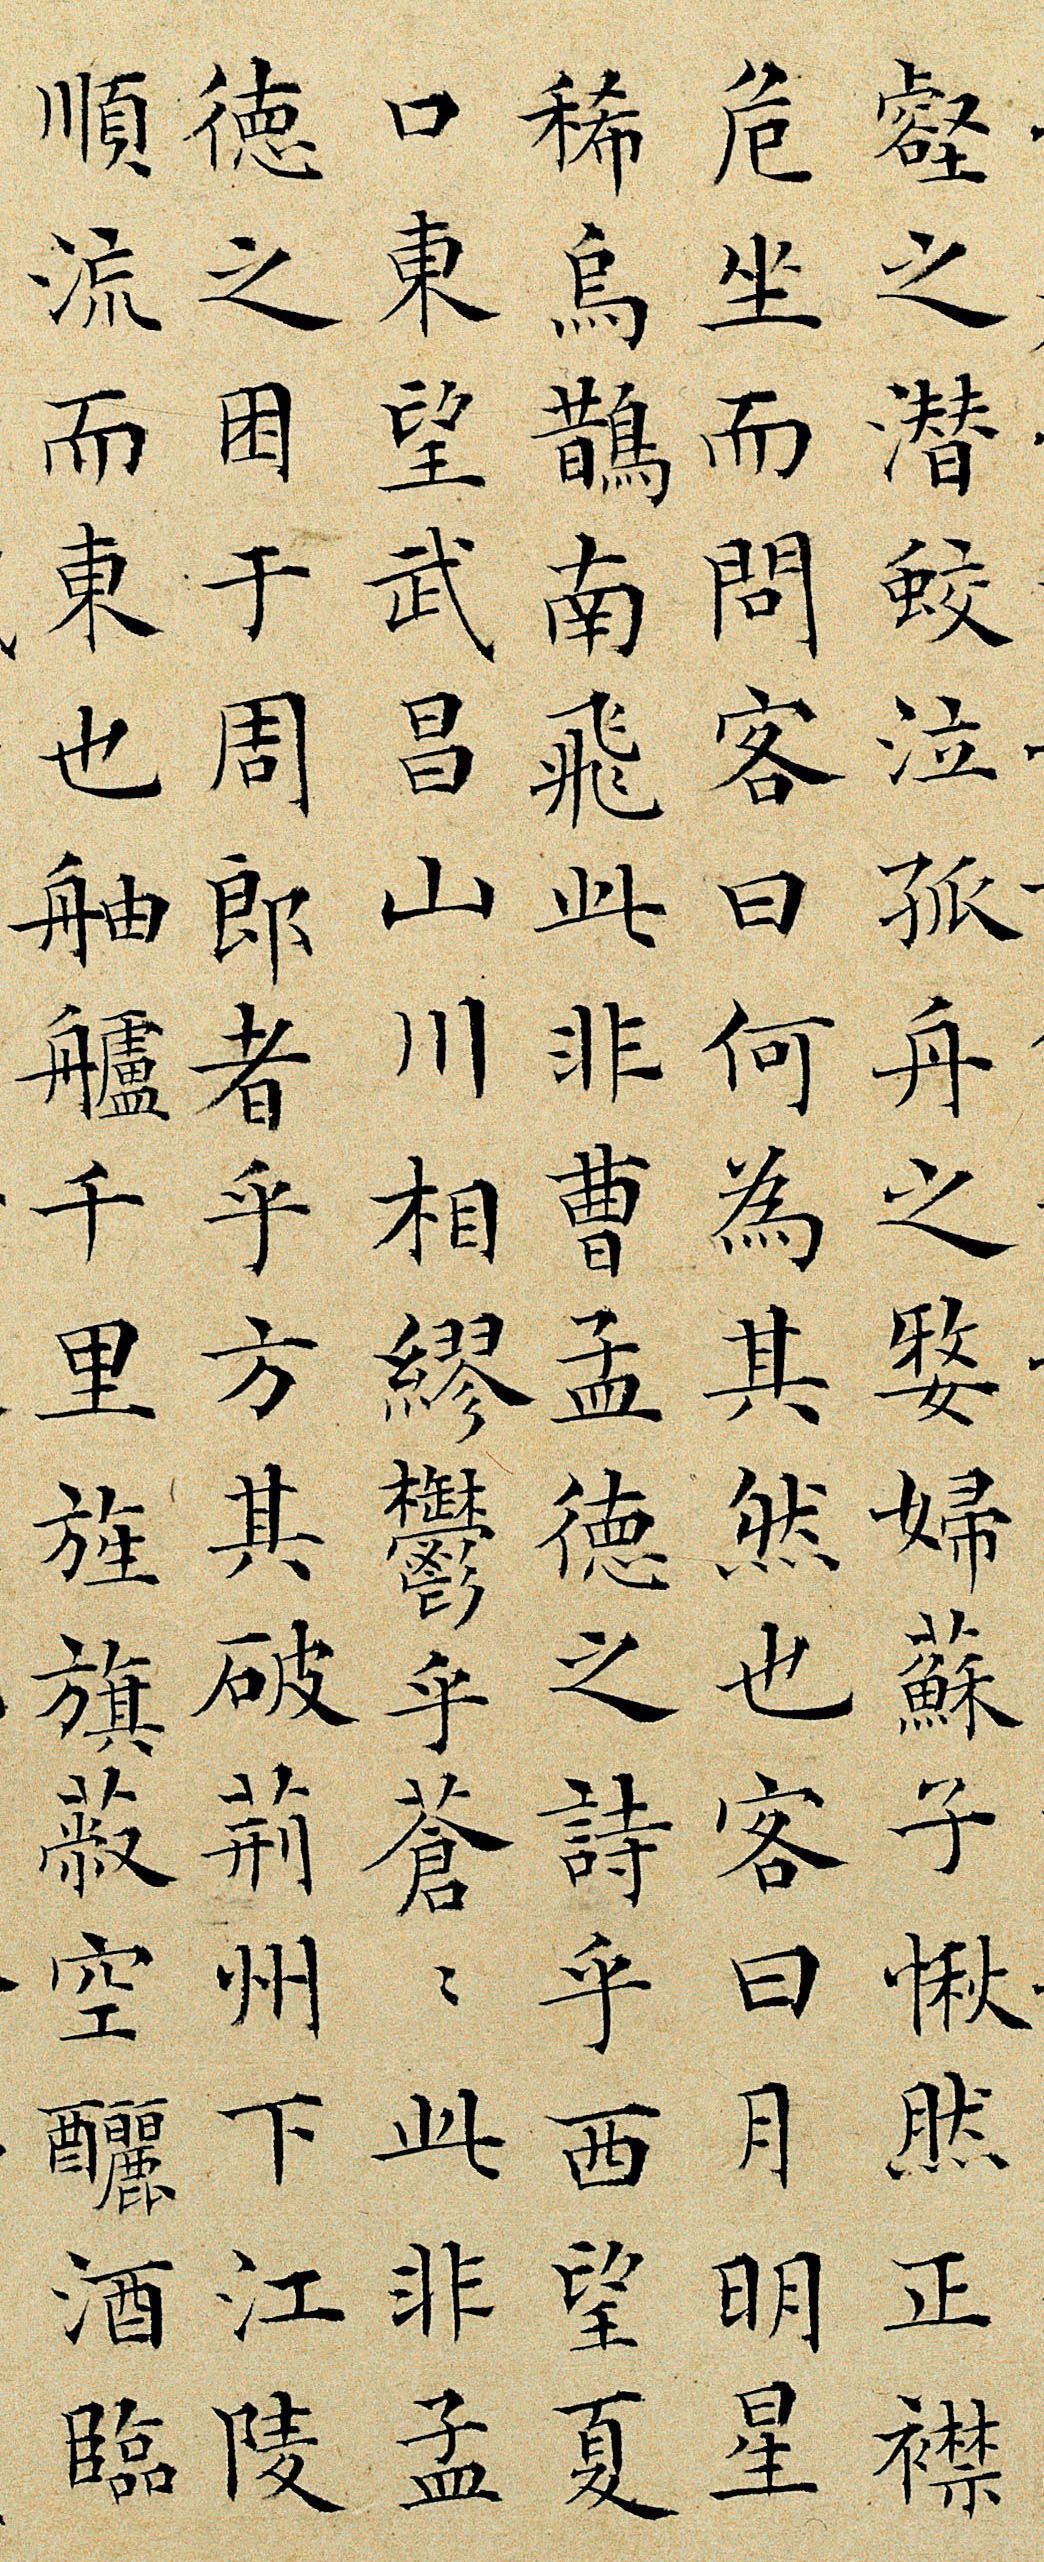 壑之潜蛟泣孤舟之嫠婦蘇子愀然正襟
危坐而問客曰何為其然也客曰月明星
稀烏鵲南飛此非曹孟徳之詩乎西望夏
口東望武昌山川相繆鬱乎蒼〻此非孟
徳之困于周郎者乎方其破荊州下江陵
順流而東也舳艫千里旌旗蔽空釃酒臨